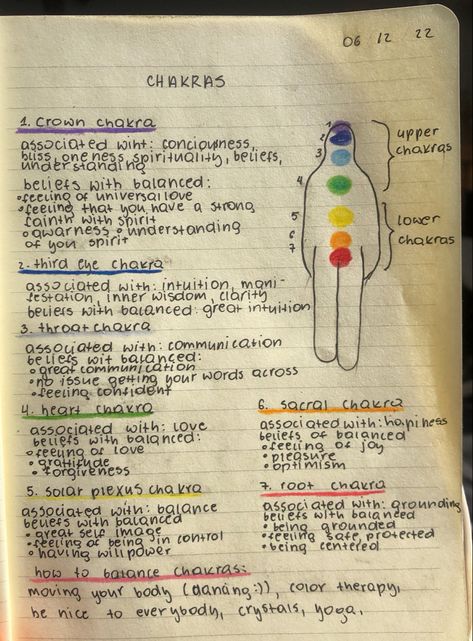 06 12 22
CHAKRAS
1. crown chakra
associated wiht: conciousness,
bliss, oneness, spirituality, beliefs,
understanding
beliefs with balanced:
•feeling of universal love
•feeling that you have a strong
fainth with spirit
•awarness •understanding
of you spirit
2. third eye chakra
associated with: intuition, mani-
festation, inner wisdom, clarity
beliefs with balanced: great intuition
3. throat chakra
associated with: communication
beliefs wit balanced:
•great communication
•no issue getting your words across
•feeling confident
4. heart chakra
associated with: love
beliefs with balanced:
•feeling of love
•gratitude
•forgiveness
5. solar plexus chakra
associated with: balance
beliefs with balanced
•great self image
•feeling of being in control
•having willpower
1
2
3
4
5
6
7
upper
chakras
lower
chakras
6. sacral chakra
associated with: hapiness
beliefs of balanced
•feeling of joy
•pleasure
•optimism
7. root chakra
associated with: grounding
beliefs with balanced
•being grounded
•feeling safe, protected
•being centered
how to balance chakras:
moving your body (dancing:)), color therapy,
be nice to everybody, crystals, yoga,